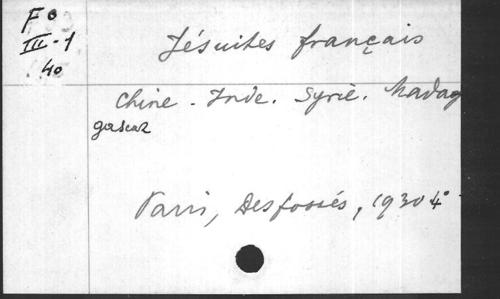 F o
III - 1
40
Jésuites français
Chine. Inde. Syrie. Madag
gascar
Paris, Desfossés, 1930 4°